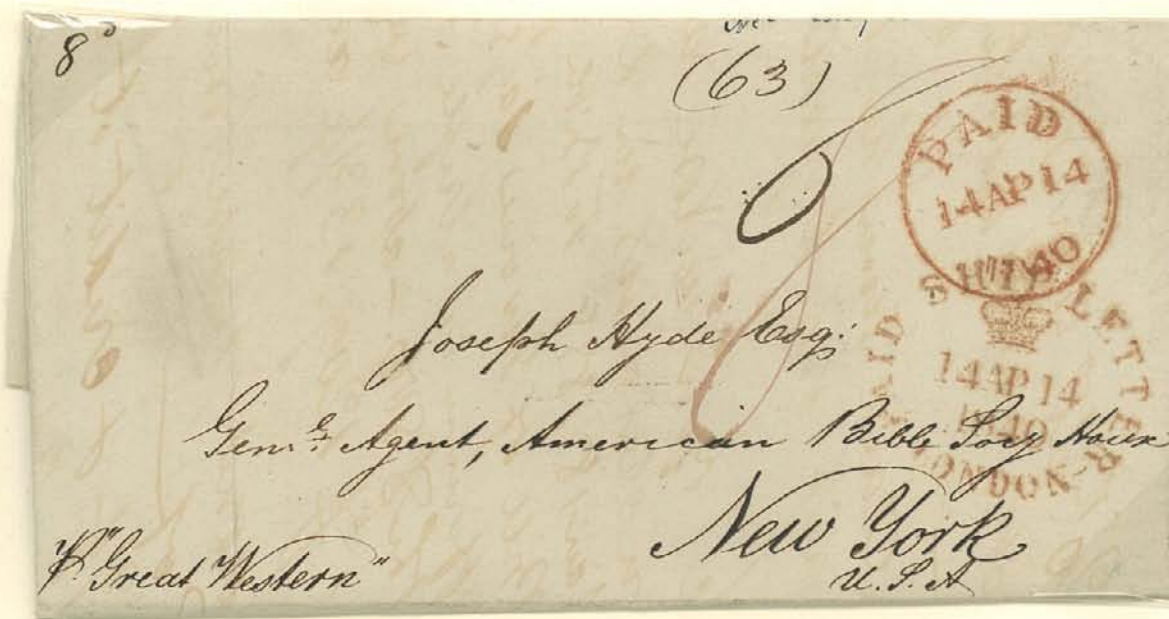 8d
(63)
PAID
14 AP 14
1840
PAID SHIP LETTER
14 AP 14
1840
LONDON
Joseph Hyde Esq:
Genl. Agent, American Bible Socy House
New York
U.S.A
Pr "Great Western"